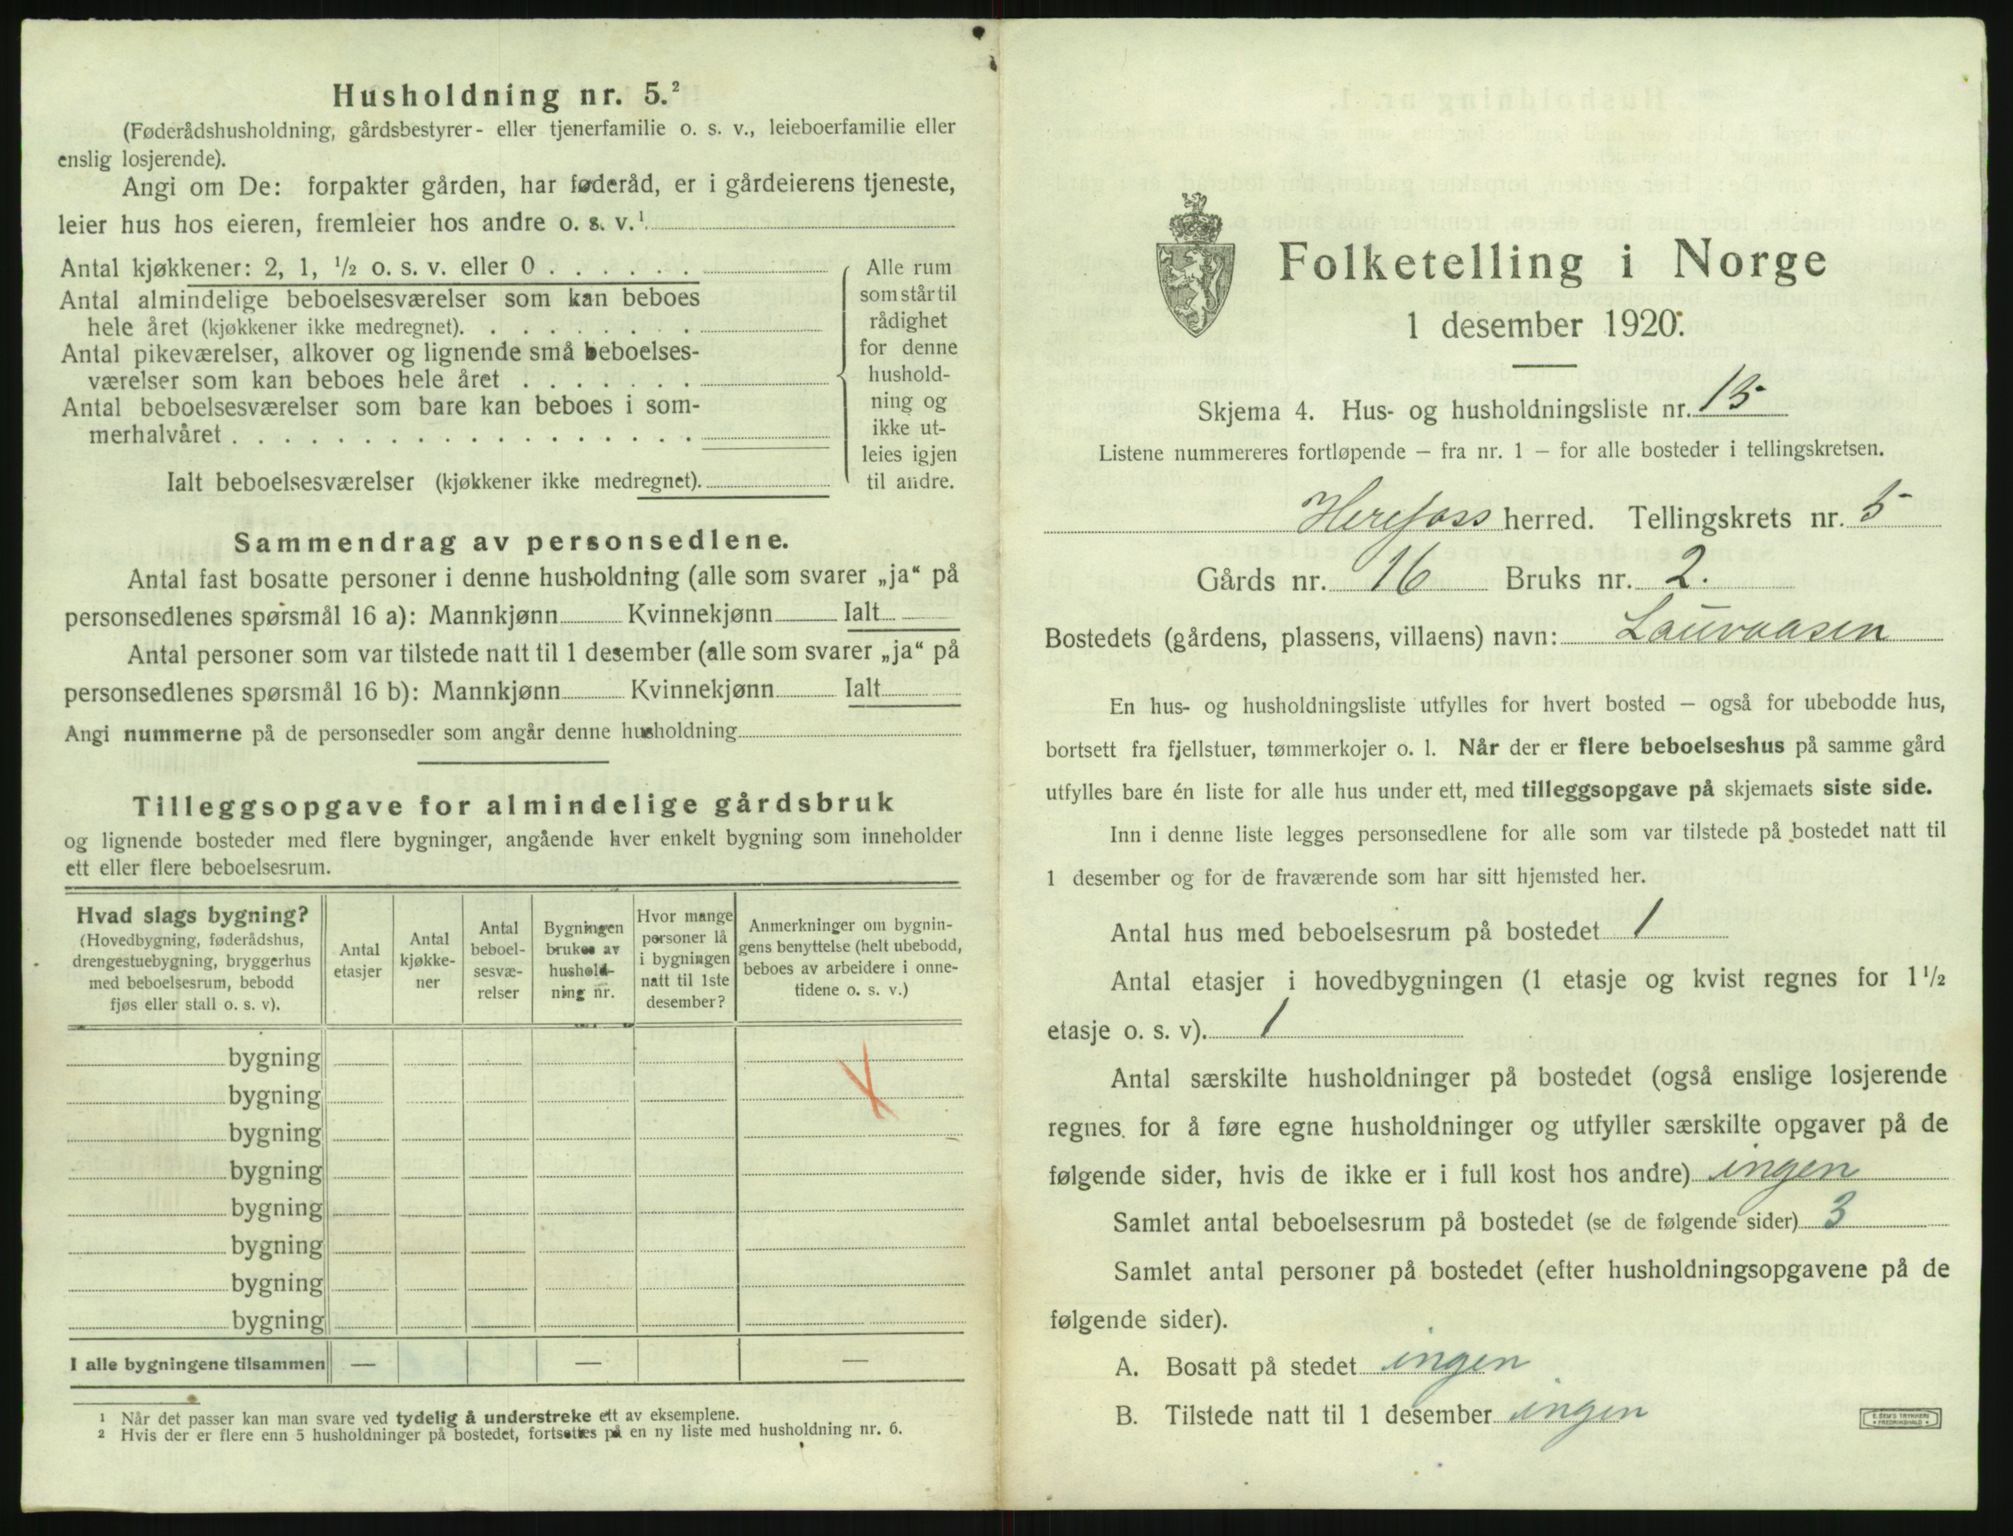 Husholdning nr. 5.²
(Føderådshusholdning, gårdsbestyrer- eller tjenerfamilie o. s. v., leieboerfamilie eller
enslig losjerende).
Angi om De: forpakter gården, har føderåd, er i gårdeierens tjeneste,
leier hus hos eieren, fremleier hos andre o. s. v.¹
Antal kjøkkener: 2, 1, ½ o. s. v. eller 0
Antal almindelige beboelsesværelser som kan beboes
hele året (kjøkkener ikke medregnet).
Antal pikeværelser, alkover og lignende små beboelses-
værelser som kan beboes hele året
Antal beboelsesværelser som bare kan beboes i som-
merhalvåret
Ialt beboelsesværelser (kjøkkener ikke medregnet).
Alle rum
som står til
rådighet
for denne
hushold-
ning og
ikke ut-
leies igjen
til andre.
Sammendrag av personsedlene.
Antal fast bosatte personer i denne husholdning (alle som svarer „ja“ på
personsedlenes spørsmål 16 a): Mannkjønn Kvinnekjønn Ialt
Antal personer som var tilstede natt til 1 desember (alle som svarer „ja“ på
personsedlenes spørsmål 16 b): Mannkjønn Kvinnekjønn Ialt
Angi nummerne på de personsedler som angår denne husholdning
Tilleggsopgave for almindelige gårdsbruk
og lignende bosteder med flere bygninger, angående hver enkelt bygning som inneholder
ett eller flere beboelsesrum.
Hvad slags bygning?
(Hovedbygning, føderådshus,
drengestuebygning, bryggerhus
med beboelsesrum, bebodd
fjøs eller stall o. s. v).
Antal
etasjer
Antal
kjøkke-
ner
Antal
beboel-
sesvæ-
relser
Bygningen
brukes av
hushold-
ning nr.
Hvor mange
personer lå
i bygningen
natt til 1ste
desember?
Anmerkninger om bygnin-
gens benyttelse (helt ubebodd,
beboes av arbeidere i onne-
tidene o. s. v.)
bygning
bygning
bygning
bygning
bygning
bygning
bygning
bygning
I alle bygningene tilsammen — — —
¹ Når det passer kan man svare ved tydelig å understreke ett av eksemplene.
² Hvis der er flere enn 5 husholdninger på bostedet, fortsettes på en ny liste med husholdning nr. 6.
Folketelling i Norge
1 desember 1920.
Skjema 4. Hus- og husholdningsliste nr. 15
Listene nummereres fortløpende – fra nr. 1 – for alle bosteder i tellingskretsen.
Herefoss herred. Tellingskrets nr. 5
Gårds nr. 16 Bruks nr. 2.
Bostedets (gårdens, plassens, villaens) navn: Lauvaasen
En hus- og husholdningsliste utfylles for hvert bosted – også for ubebodde hus,
bortsett fra fjellstuer, tømmerkojer o. l. Når der er flere beboelseshus på samme gård
utfylles bare én liste for alle hus under ett, med tilleggsopgave på skjemaets siste side.
Inn i denne liste legges personsedlene for alle som var tilstede på bostedet natt til
1 desember og for de fraværende som har sitt hjemsted her.
Antal hus med beboelsesrum på bostedet 1
Antal etasjer i hovedbygningen (1 etasje og kvist regnes for 1½
etasje o. s. v). 1
Antal særskilte husholdninger på bostedet (også enslige losjerende
regnes for å føre egne husholdninger og utfyller særskilte opgaver på de
følgende sider, hvis de ikke er i full kost hos andre) ingen
Samlet antal beboelsesrum på bostedet (se de følgende sider) 3
Samlet antal personer på bostedet (efter husholdningsopgavene på de
følgende sider).
A. Bosatt på stedet ingen
B. Tilstede natt til 1 desember ingen
E. SEM'S TRYKKERI
FREDRIKSHALD